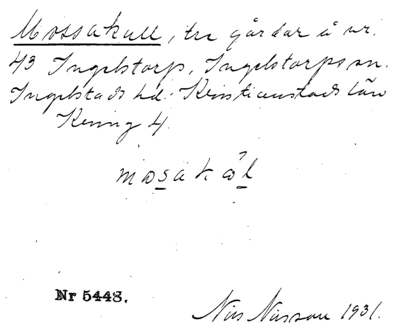 Mossakull, tre gårdar å nr.
43 Ingelstorp, Ingelstorps sn.
Ingelstads hd. Kristianstads län
Kring 4.
mosakål
Nr 5448.
Nils Nilsson 1931.